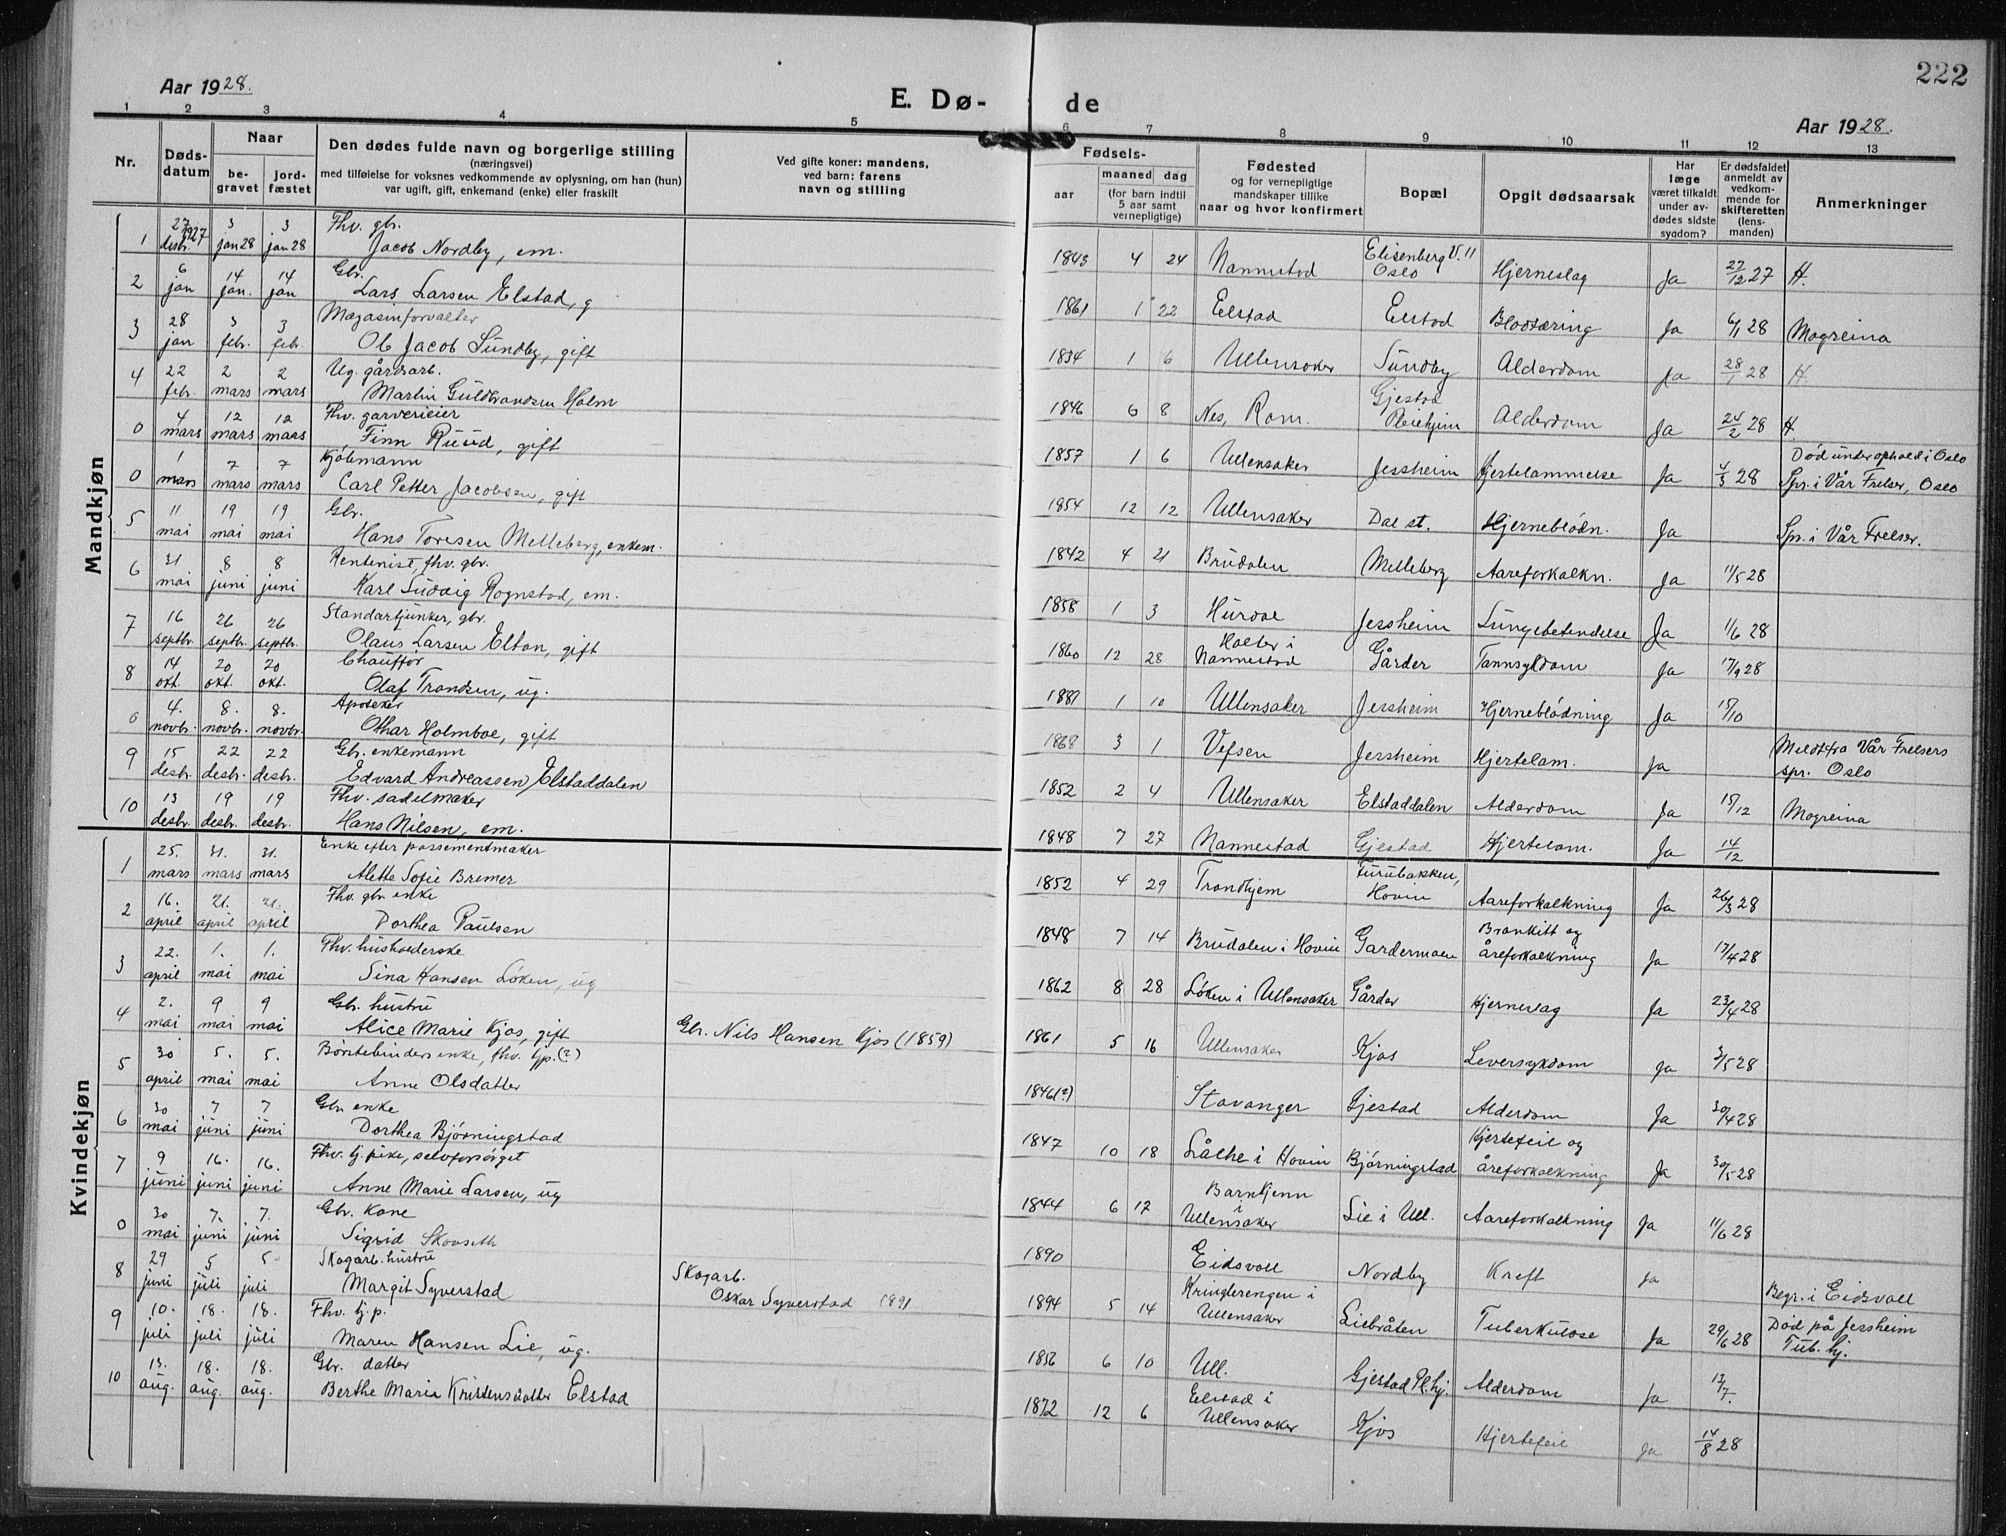 222
Aar 1928.
E. Dø-
de
Aar 1928.
1 2 3 4 5 6 7 8 9 10 11 12 13
Nr.
Døds-
datum
Naar
be-
gravet
jord-
fæstet
Den dødes fulde navn og borgerlige stilling
(næringsvei)
med tilføielse for voksnes vedkommende av oplysning, om han (hun)
var ugift, gift, enkemand (enke) eller fraskilt
Ved gifte koner: mandens,
ved barn: farens
navn og stilling
Fødsels-
aar
maaned dag
(for barn indtil
5 aar samt
vernepligtige)
Fødested
og for vernepligtige
mandskaper tillike
naar og hvor konfirmert
Bopæl
Opgit dødsaarsak
Har
læge
været tilkaldt
under av-
dødes sidste
sygdom?
Er dødsfaldet
anmeldt av
vedkom-
mende for
skifteretten
(lens-
manden)
Anmerkninger
Mandkjøn
1 27 desbr. 1927 3 jan 28 3 jan 28 Fhv. gbr. Jacob Nordby, em. 1843 4 24 Nannestad Elisenberg V. 11 Oslo Hjerneslag Ja 27/12 27 H.
2 6 jan 14 jan. 14 jan Gbr. Lars Larsen Elstad, g 1861 1 22 Elstad Elstad Blodtæring Ja 6/1 28 Mogreina
3 28 jan 3 febr. 3 febr Magasinforvalter Ole Jacob Sundby, gift 1834 1 6 Ullensaker Sundby Alderdom Ja 28/1 28 H
4 22 febr. 2 mars 2 mars Ug. gårdsarb. Martin Guldbrandsen Holm 1846 6 8 Nes, Rom. Gjestad Pleiehjem Alderdom Ja 24/2 28 H.
0 4 mars 12 mars 12 mars Fhv. garverieier Finn Ruud, gift 1857 1 6 Ullensaker Jessheim Hjertelammelse Ja 4/3 28 Død under ophold i Oslo Spr. i Vår Frelser, Oslo
0 1 mars 7 mars 7 mars Kjøbmann Carl Petter Jacobsen, gift 1854 12 12 Ullensaker Dal st. Hjerneblødn. Ja Spr. i Vår Frelser.
5 11 mai 19 mai 19 mai Gbr. Hans Toresen Melleberg, enkem. 1842 4 21 Brudalen Melleberg Aareforkalkn. Ja 11/5 28
6 31 mai 8 juni 8 juni Rentenist, fhv. gbr. Karl Ludvig Rognstad, em. 1858 1 3 Hurdal Jessheim Lungebetendelse Ja 1/6 28
7 16 septbr. 26 septbr. 26 septbr. Standartjunker, gbr. Olaus Larsen Elton, gift 1860 12 28 Holter i Nannestad Gårder Tannsykdom Ja 17/9 28
8 14 okt. 20 okt. 20 okt. Chauffør Olaf Trondsen, ug. 1889 1 10 Ullensaker Jessheim Hjerneblødning Ja 15/10
0 4. novbr. 8. novbr. 8. novbr. Apoteker Othar Holmboe, gift 1868 3 1 Vefsen Jessheim Hjertelam. Ja Meldt fra Vår Frelsers spr. Oslo
9 15 desbr. 22 desbr. 22 desbr. Gbr. enkemann Edvard Andreassen Elstaddalen 1852 2 4 Ullensaker Elstaddalen Alderdom Ja 15/12 Mogreina
10 13 desbr. 19 desbr. 19 desbr. Fhv. sadelmaker Hans Nilsen, em. 1848 7 27 Nannestad Gjestad Hjertelam. Ja 14/12
Kvindekjøn
1 25. mars 31. mars 31. mars Enke efter possementmaker Alette Sofie Bremer 1852 4 29 Trondhjem Furubakken, Hovin Aareforkalkning Ja 26/3 28
2 16. april 21. april 21. april Fhv. gbr. enke Dorthea Paulsen 1848 7 14 Brudalen i Hovin Gardermoen Bronkitt og åreforkalkning Ja 17/4 28
3 22. april 1. mai 1. mai Fhv. husholderske Sina Hansen Løken, ug 1862 8 28 Løken i Ullensaker Gårder Hjerneslag Ja 23/4 28
4 2. mai 9 mai 9 mai Gbr. hustru Alice Marie Kjos, gift Gbr. Nils Hansen Kjos (1859) 1861 5 16 Ullensaker Kjos Leversykdom Ja 3/5 28
5 30 april 5. mai 5. mai Børstebinders enke, fhv. tjp. (?) Anne Olsdatter 1846(?) Stavanger Gjestad Alderdom Ja 30/4 28
6 30 mai 7 juni 7 juni Gbr. enke Dorthea Bjørningstad 1847 10 18 Låche i Hovin Bjørningstad Hjertefeil og åreforkalkning Ja 30/5 28
7 9 juni 16. juni 16. juni Fhv. tj. pike, selvforsørget Anne Marie Larsen, ug 1844 6 12 Barnhjem i Ullensaker Lie i Ull. Aareforkalkning Ja 11/6 28
0 30 mai 7. juni 7. juni Gbr. kone Sigrid Skovseth 1890 Eidsvoll Nordby Kreft Ja Begr. i Eidsvoll
8 29 juni 5 juli 5 juli Skogarb. hustru Margit Syverstad Skogarb. Oskar Syverstad 1891 1894 5 14 Kringlerengen i Ullensaker Liebråten Tuberkulose Ja 29/6 28 Død på Jessheim Tub. hj.
9 10. juli 18. juli 18. juli Fhv. tj. p. Maren Hansen Lie, ug. 1856 6 10 Ull. Gjestad Pl.hj. Alderdom Ja 12/7.
10 13. aug. 18. aug. 18. aug. Gbr. datter Berthe Marie Kristensdatter Elstad 1872 12 6 Elstad i Ullensaker Kjos Hjertefeil Ja 14/8 28